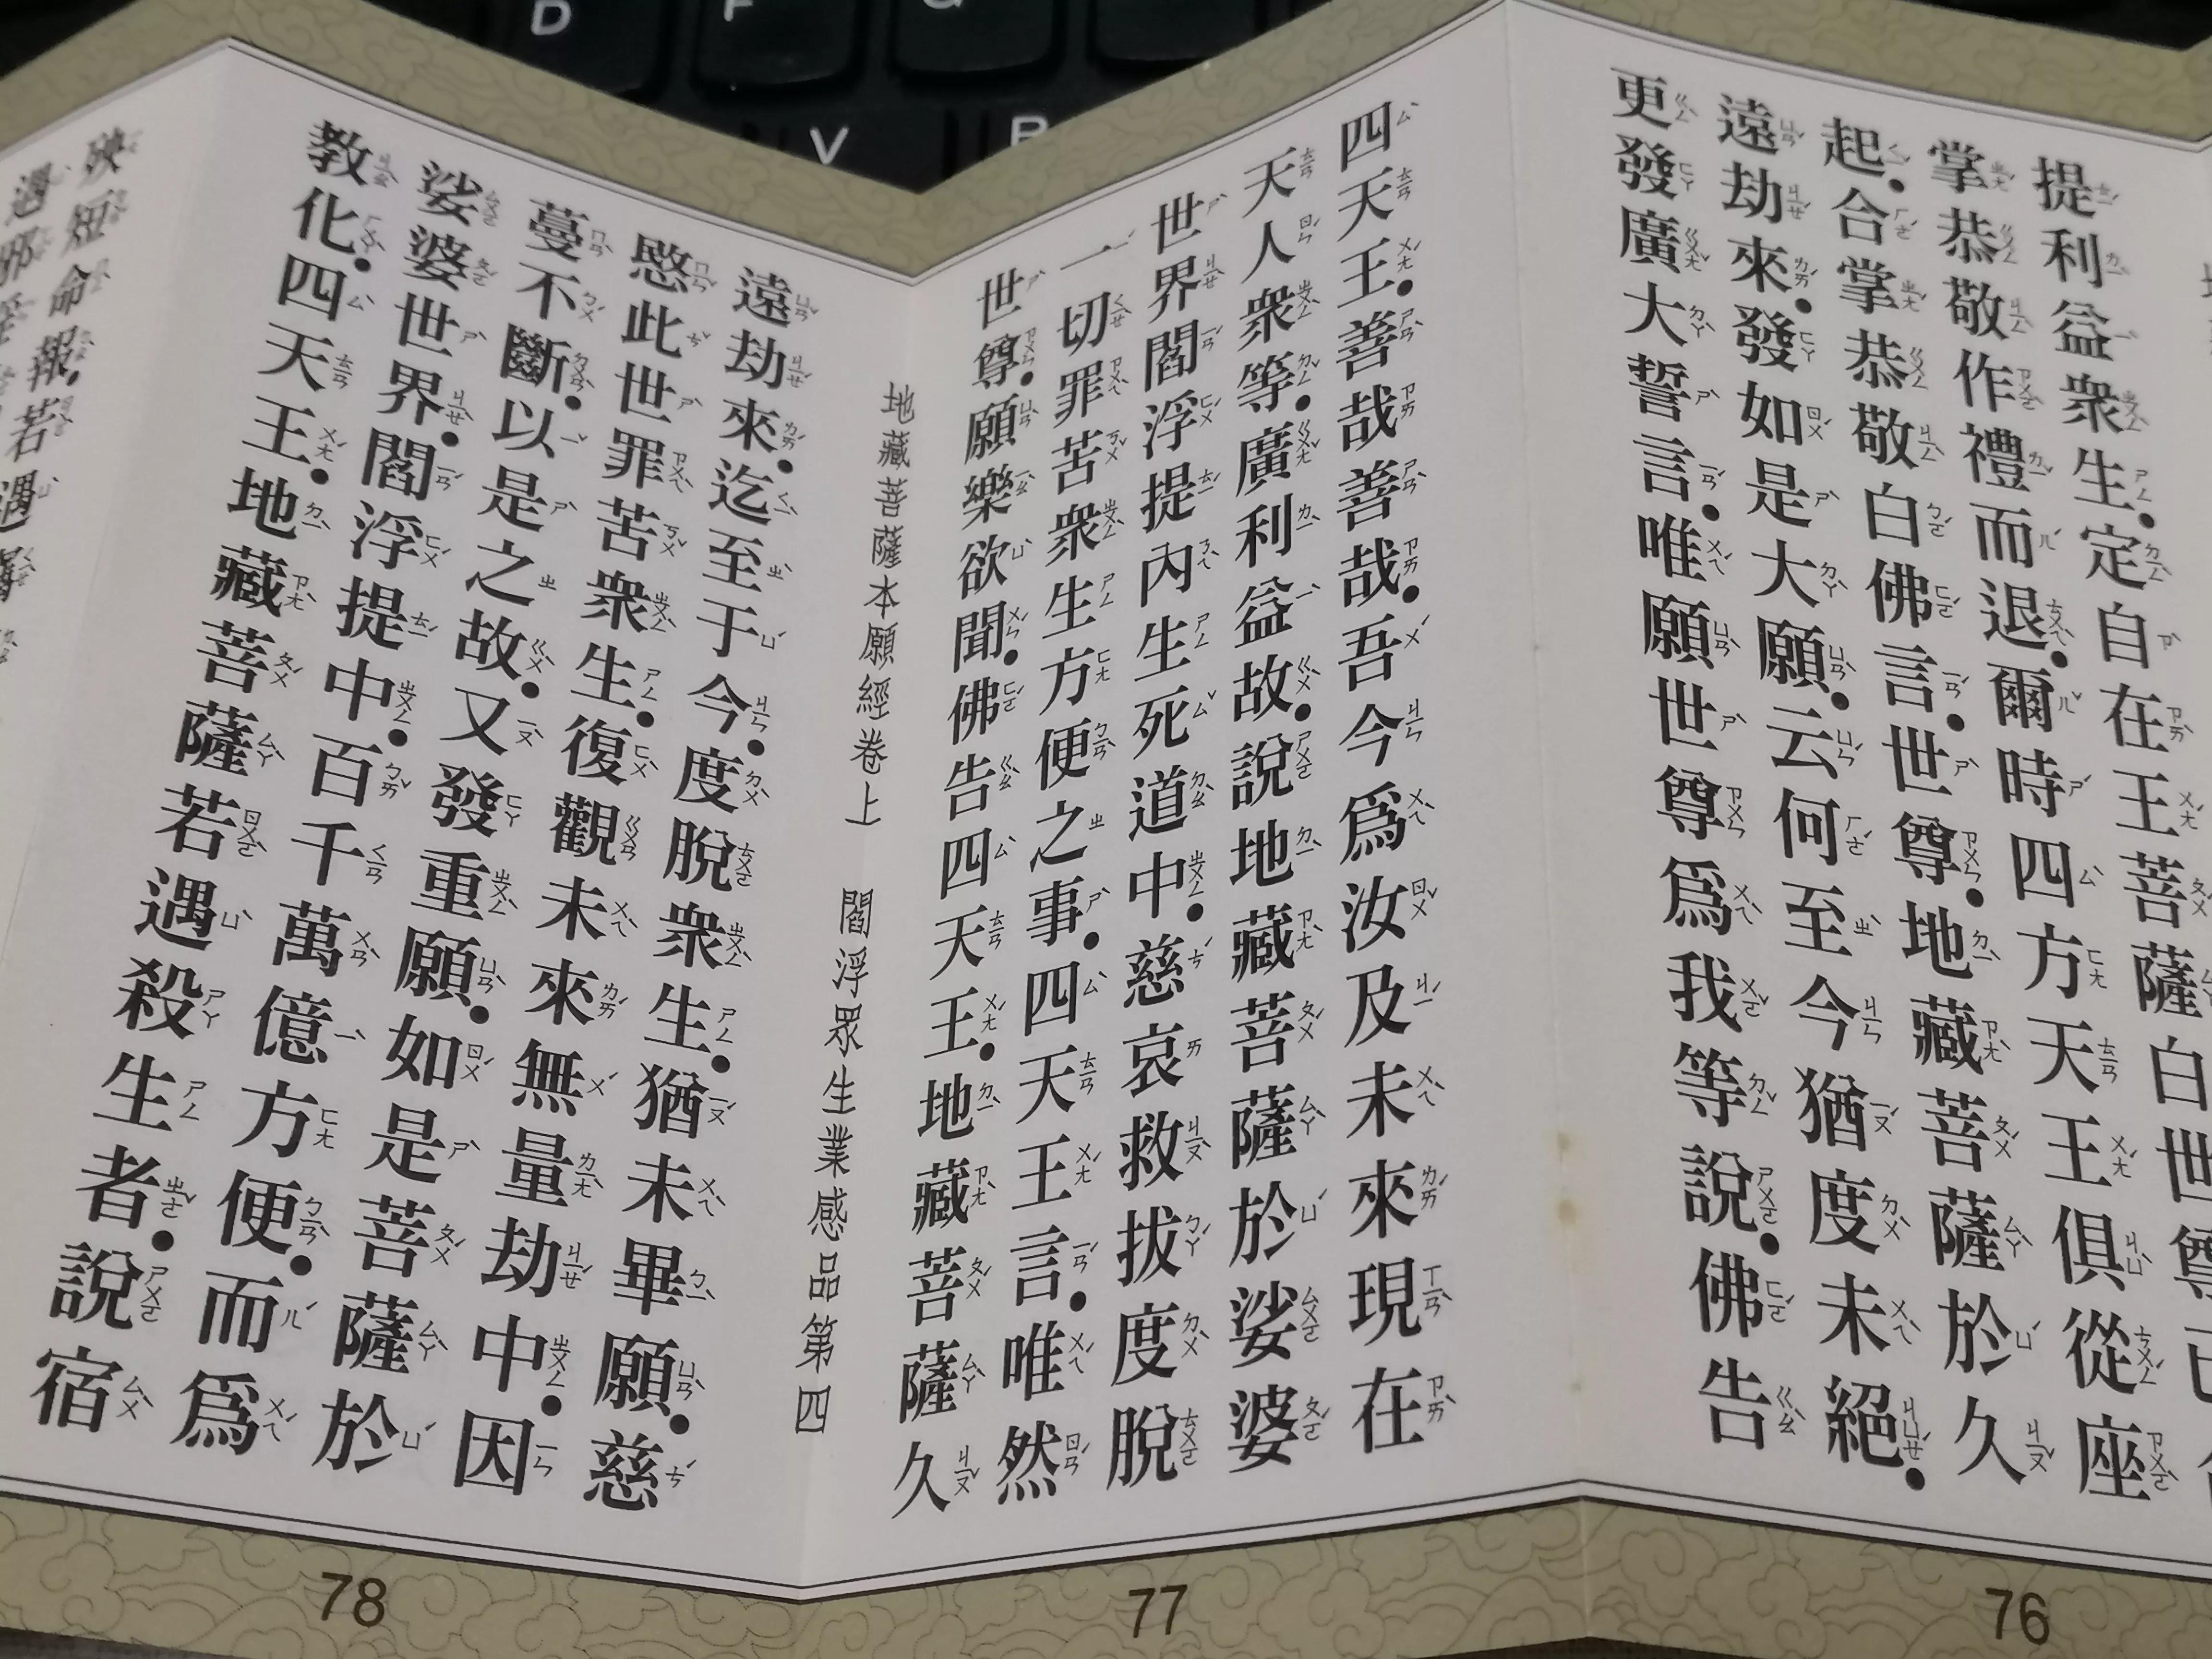 薩白世尊已
提利益衆生。定自在王菩
掌恭敬作禮而退。爾時四方天王俱從座
起。合掌恭敬白佛言。世尊。地藏菩薩於久
遠劫來。發如是大願。云何至今猶度未絕。
更發廣大誓言。唯願世尊爲我等說。佛告
四天王。善哉善哉。吾今爲汝及未來現在
天人衆等。廣利益故。說地藏菩薩於娑婆
世界閻浮提內生死道中。慈哀救拔度脫
一切罪苦衆生方便之事。四天王言。唯然
世尊。願樂欲聞。佛告四天王。地藏菩薩久
地藏菩薩本願經卷上 閻浮眾生業感品第四
遠劫來。迄至于今。度脫衆生。猶未畢願。慈
愍此世罪苦衆生。復觀未來無量劫中。因
蔓不斷。以是之故。又發重願。如是菩薩於
娑婆世界。閻浮提中。百千萬億方便。而爲
教化。四天王。地藏菩薩若遇殺生者。說宿
殃短命報。若遇
遇邪
76
77
78
D
F
G
V
B